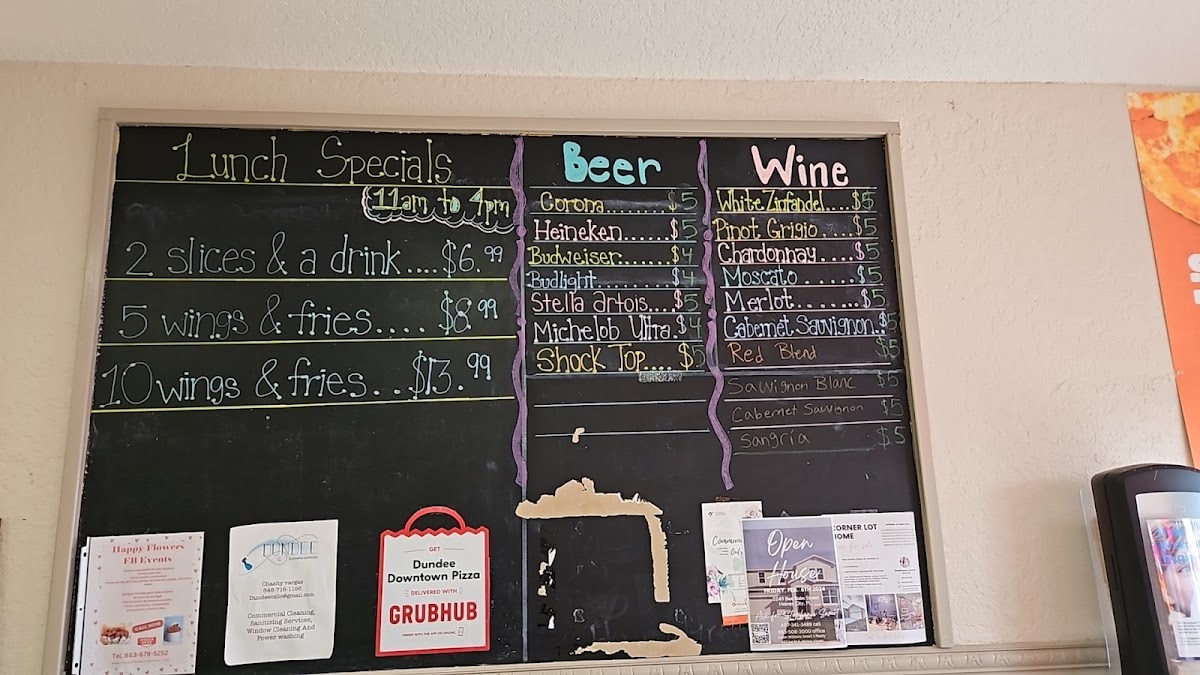 Lunch Specials
11am to 4pm
2 slices & a drink....$6.99
5 wings & fries....$8.99
10 wings & fries...$13.99
Beer
Corona........$5
Heineken......$5
Budweiser.......$4
Budlight........$4
Stella Artois....$5
Michelob Ultra.$4
Shock Top....$5
Wine
White Zinfandel....$5
Pinot Grigio.....$5
Chardonnay....$5
Moscato.......$5
Merlot........$5
Cabernet Sauvignon..$5
Red Blend $5
Sauvignon Blanc $5
Cabernet Sauvignon $5
Sangria $5
Happy Flowers
FB Events
CALL NOW
Tel. 863-679-5252
DUNDEE
Chasity vargas
646-716-1196
Commercial Cleaning,
Sanitizing Services,
Window Cleaning And
Power washing
GET
Dundee
Downtown Pizza
DELIVERED WITH
GRUBHUB
ORDER WITH THE APP OR ONLINE.
Open
House
Haines City, FL
CORNER LOT
HOME